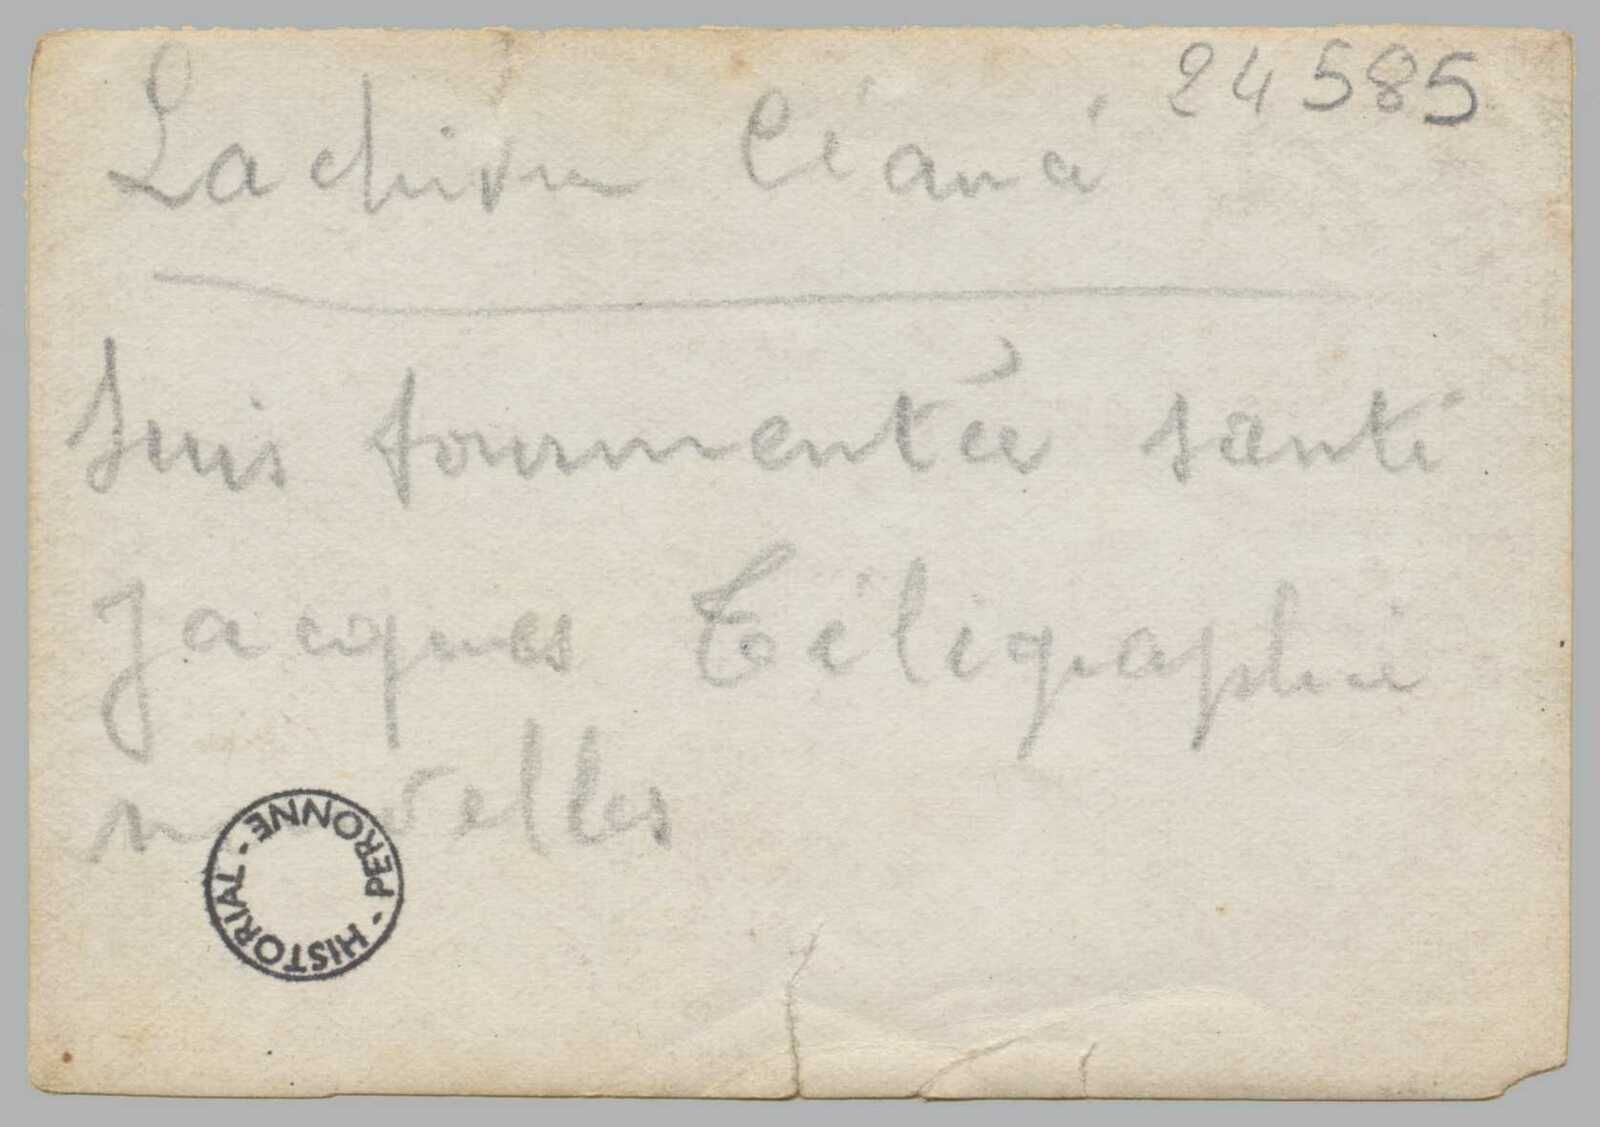 24585
Lachivre Céané
Suis tourmentée santé
Jacques Télégraphie
nouvelles
HISTORIAL - PERONNE -